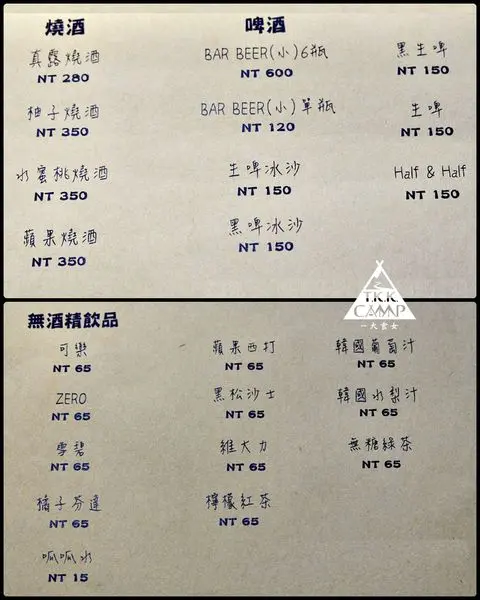 燒酒
真露燒酒
NT 280
柚子燒酒
NT 350
水蜜桃燒酒
NT 350
蘋果燒酒
NT 350
啤酒
BAR BEER(小)6瓶
NT 600
BAR BEER(小)單瓶
NT 120
生啤冰沙
NT 150
黑啤冰沙
NT 150
黑生啤
NT 150
生啤
NT 150
Half & Half
NT 150
T.K.K.
CAMP
一大食女
無酒精飲品
可樂
NT 65
ZERO
NT 65
雪碧
NT 65
橘子芬達
NT 65
呱呱水
NT 15
蘋果西打
NT 65
黑松沙士
NT 65
維大力
NT 65
檸檬紅茶
NT 65
韓國葡萄汁
NT 65
韓國水梨汁
NT 65
無糖綠茶
NT 65